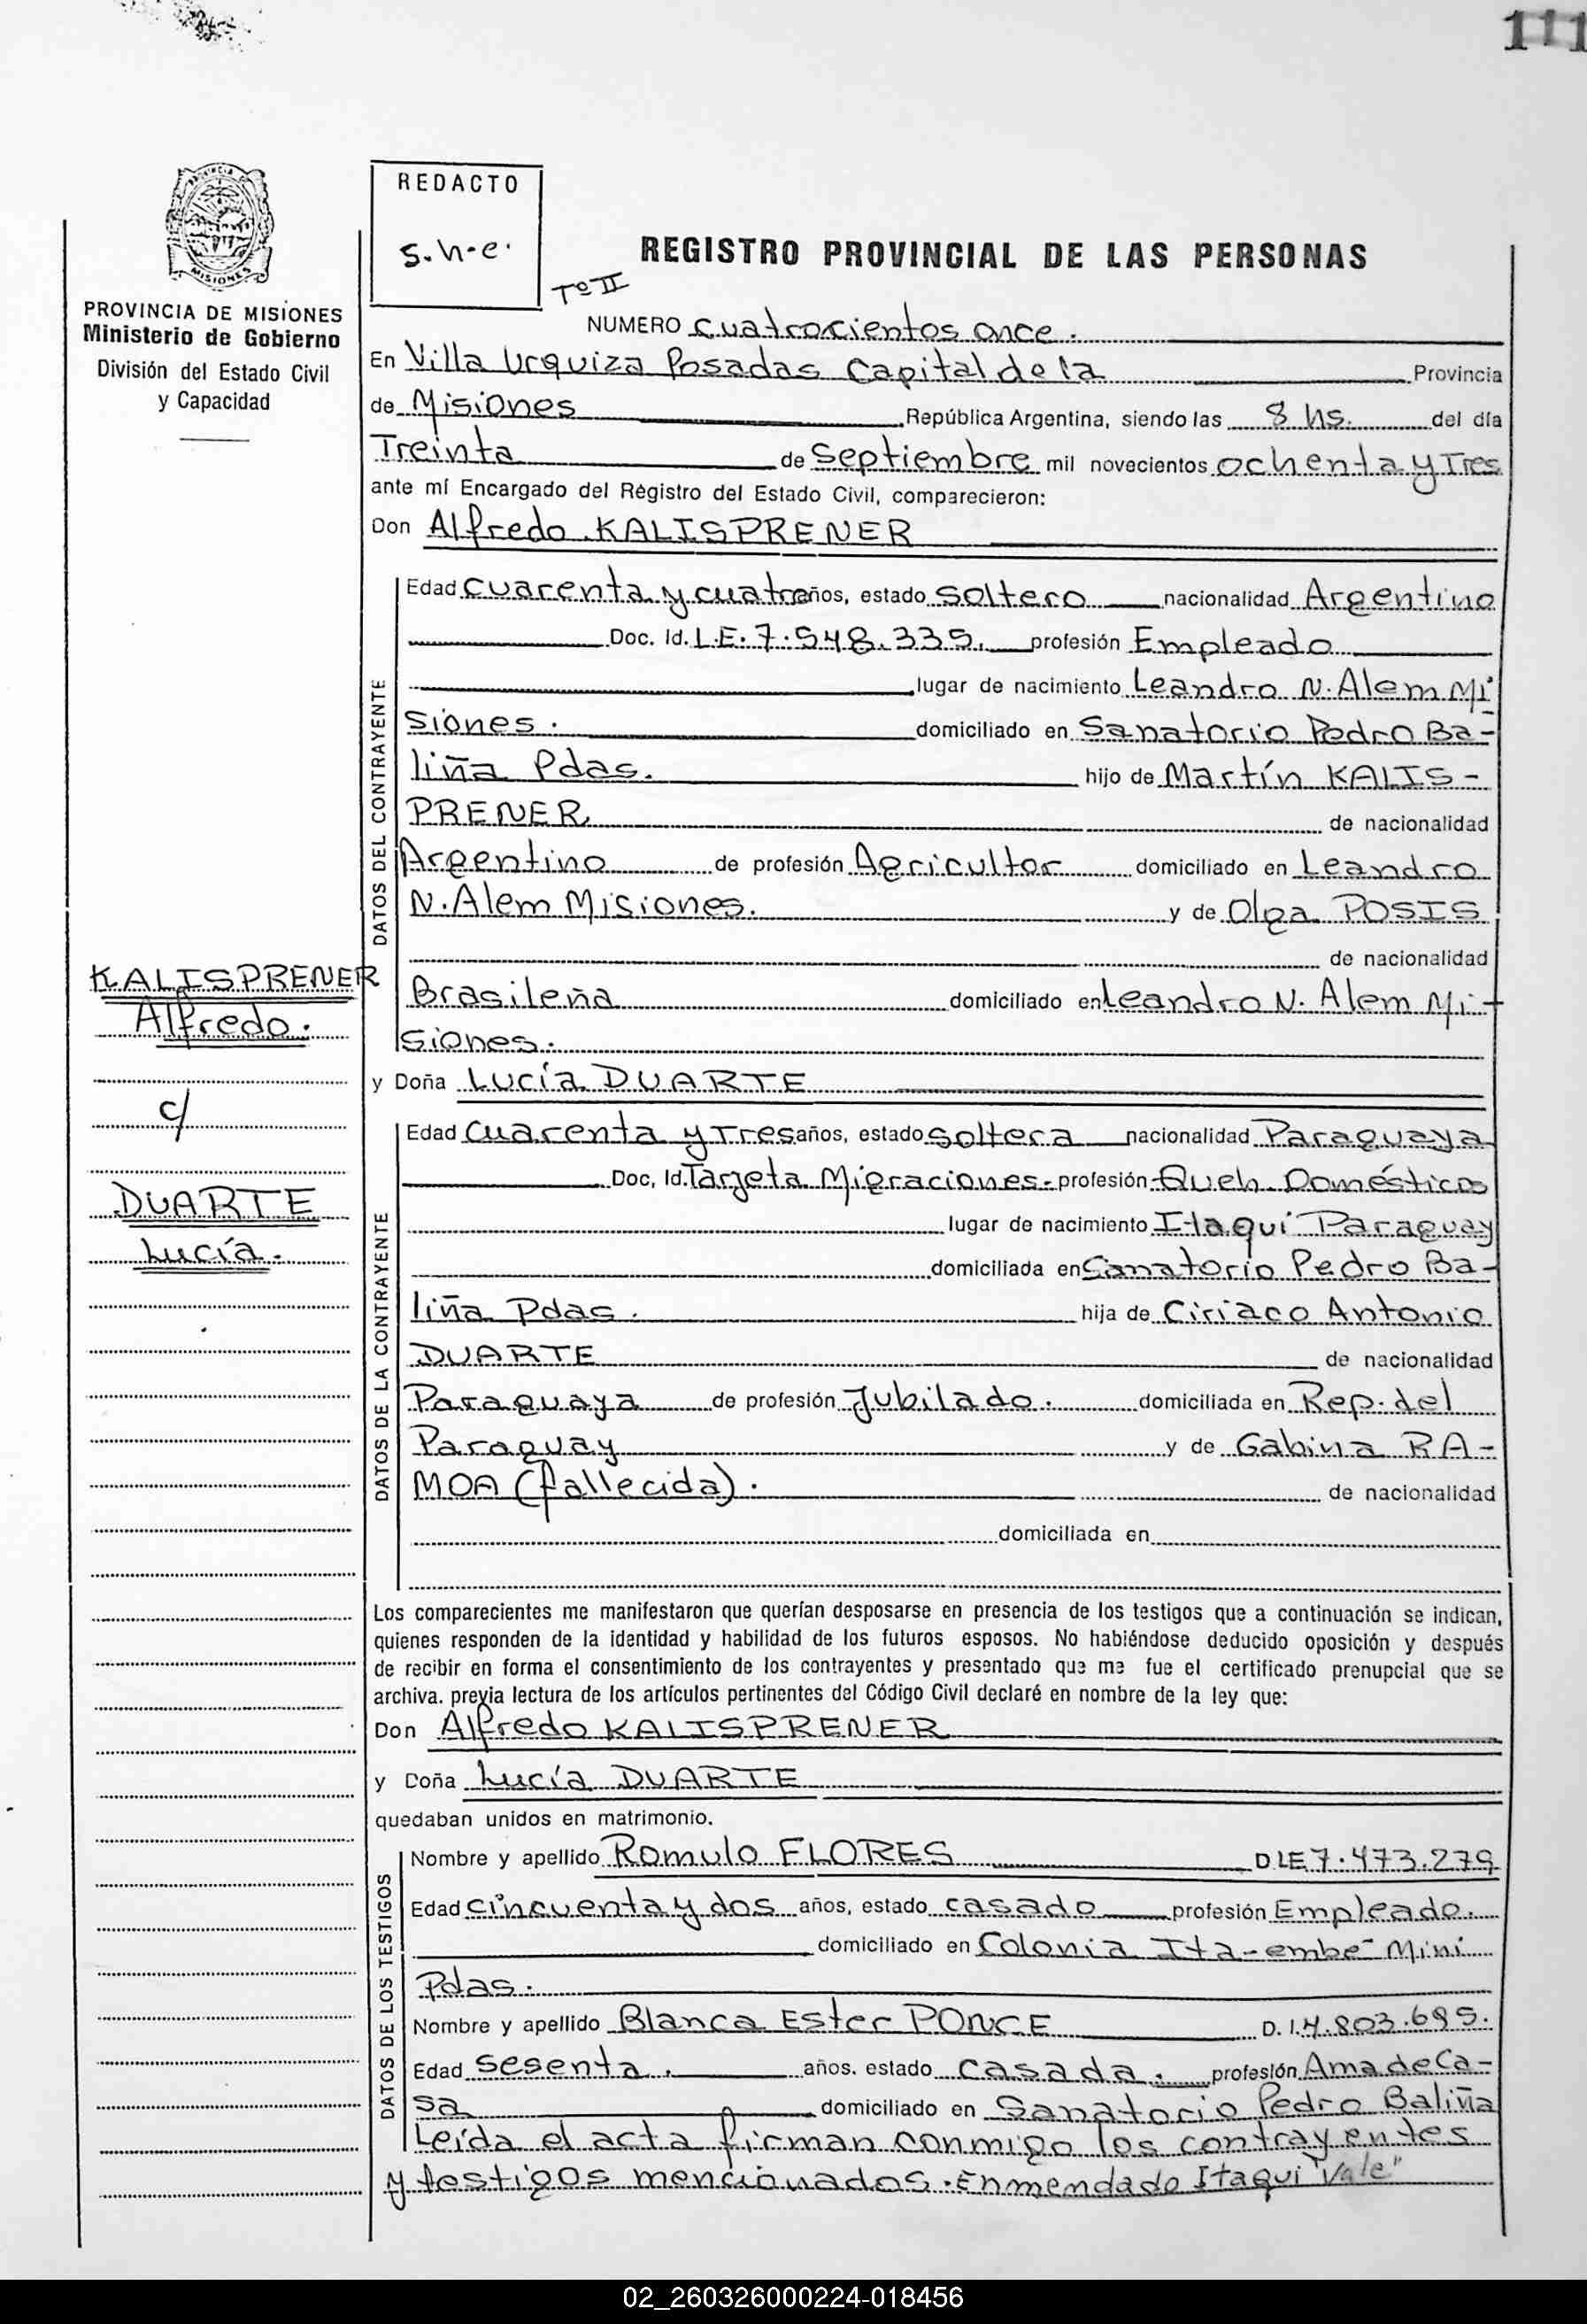 111
REDACTO
S.N.e.
REGISTRO PROVINCIAL DE LAS PERSONAS
Tº II
PROVINCIA DE MISIONES
Ministerio de Gobierno
División del Estado Civil
y Capacidad
NUMERO cuatrocientos once.
En Villa Urquiza Posadas Capital de la Provincia
de Misiones República Argentina, siendo las 8 hs. del día
Treinta de Septiembre mil novecientos ochenta y Tres
ante mí Encargado del Régistro del Estado Civil, comparecieron:
Don Alfredo KALISPRENER
DATOS DEL CONTRAYENTE
Edad cuarenta y cuatro años, estado soltero nacionalidad Argentino
Doc. Id. L.E. 7.548.335. profesión Empleado
lugar de nacimiento Leandro N. Alem Mi
siones. domiciliado en Sanatorio Pedro Ba-
liña Pdas. hijo de Martín KALIS-
PRENER de nacionalidad
Argentino de profesión Agricultor domiciliado en Leandro
N. Alem Misiones. y de Olga POSIS
de nacionalidad
Brasileña domiciliado en Leandro N. Alem Mi-
siones.
KALISPRENER
Alfredo.
c/
DUARTE
Lucía.
y Doña Lucía DUARTE
DATOS DE LA CONTRAYENTE
Edad cuarenta y Tres años, estado soltera nacionalidad Paraguaya
Doc, Id. Tarjeta Migraciones- profesión Queh. Domésticos
lugar de nacimiento Itaquí Paraguay
domiciliada en Sanatorio Pedro Ba-
liña Pdas. hija de Ciriaco Antonio
DUARTE de nacionalidad
Paraguaya de profesión Jubilado. domiciliada en Rep. del
Paraguay y de Gabina RA-
MOA (fallecida). de nacionalidad
domiciliada en
Los comparecientes me manifestaron que querían desposarse en presencia de los testigos que a continuación se indican,
quienes responden de la identidad y habilidad de los futuros esposos. No habiéndose deducido oposición y después
de recibir en forma el consentimiento de los contrayentes y presentado que me fue el certificado prenupcial que se
archiva. previa lectura de los artículos pertinentes del Código Civil declaré en nombre de la ley que:
Don Alfredo KALISPRENER
y Doña Lucía DUARTE
quedaban unidos en matrimonio.
DATOS DE LOS TESTIGOS
Nombre y apellido Romulo FLORES D.LE 7.473.279
Edad cincuenta y dos años, estado casado profesión Empleado.
domiciliado en Colonia Ita-embé Mini
Pdas.
Nombre y apellido Blanca Ester PONCE D. I. 4.803.695.
Edad Sesenta. años. estado casada. profesión Ama de Ca-
sa domiciliado en Sanatorio Pedro Baliña
Leída el acta firman conmigo los contrayentes
y testigos mencionados. Enmendado Itaquí "Vale"
02_260326000224-018456